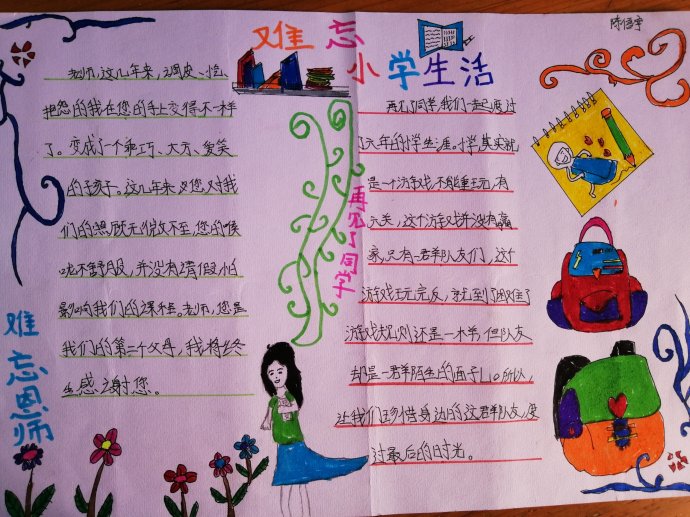 难忘
小学生活
陈恒宇
老师,这几年来,调皮、
把您的我在您的手上变得不一样
了。变成了一个乖巧、大方、爱笑
的孩子。这几年来 您对我
们的照顾无微不至,您的喉
咙不舒服,并没有请假,怕
影响我们的课程。老师,您是
我们的第二个父母,我将终
生感谢您。
难忘恩师
再见了同学
再见了同学,我们一起度过
了六年的小学生涯。小学其实就
是一个游戏,不能重玩,有
六关,这个游戏并没有赢
家,只有一群队友们,这个
游戏玩完后,就到了
游戏规则还是一木羊,但队友
却是一群陌生的面子L。所以,
让我们珍惜身边的这群队友,度
过最后的日时光。